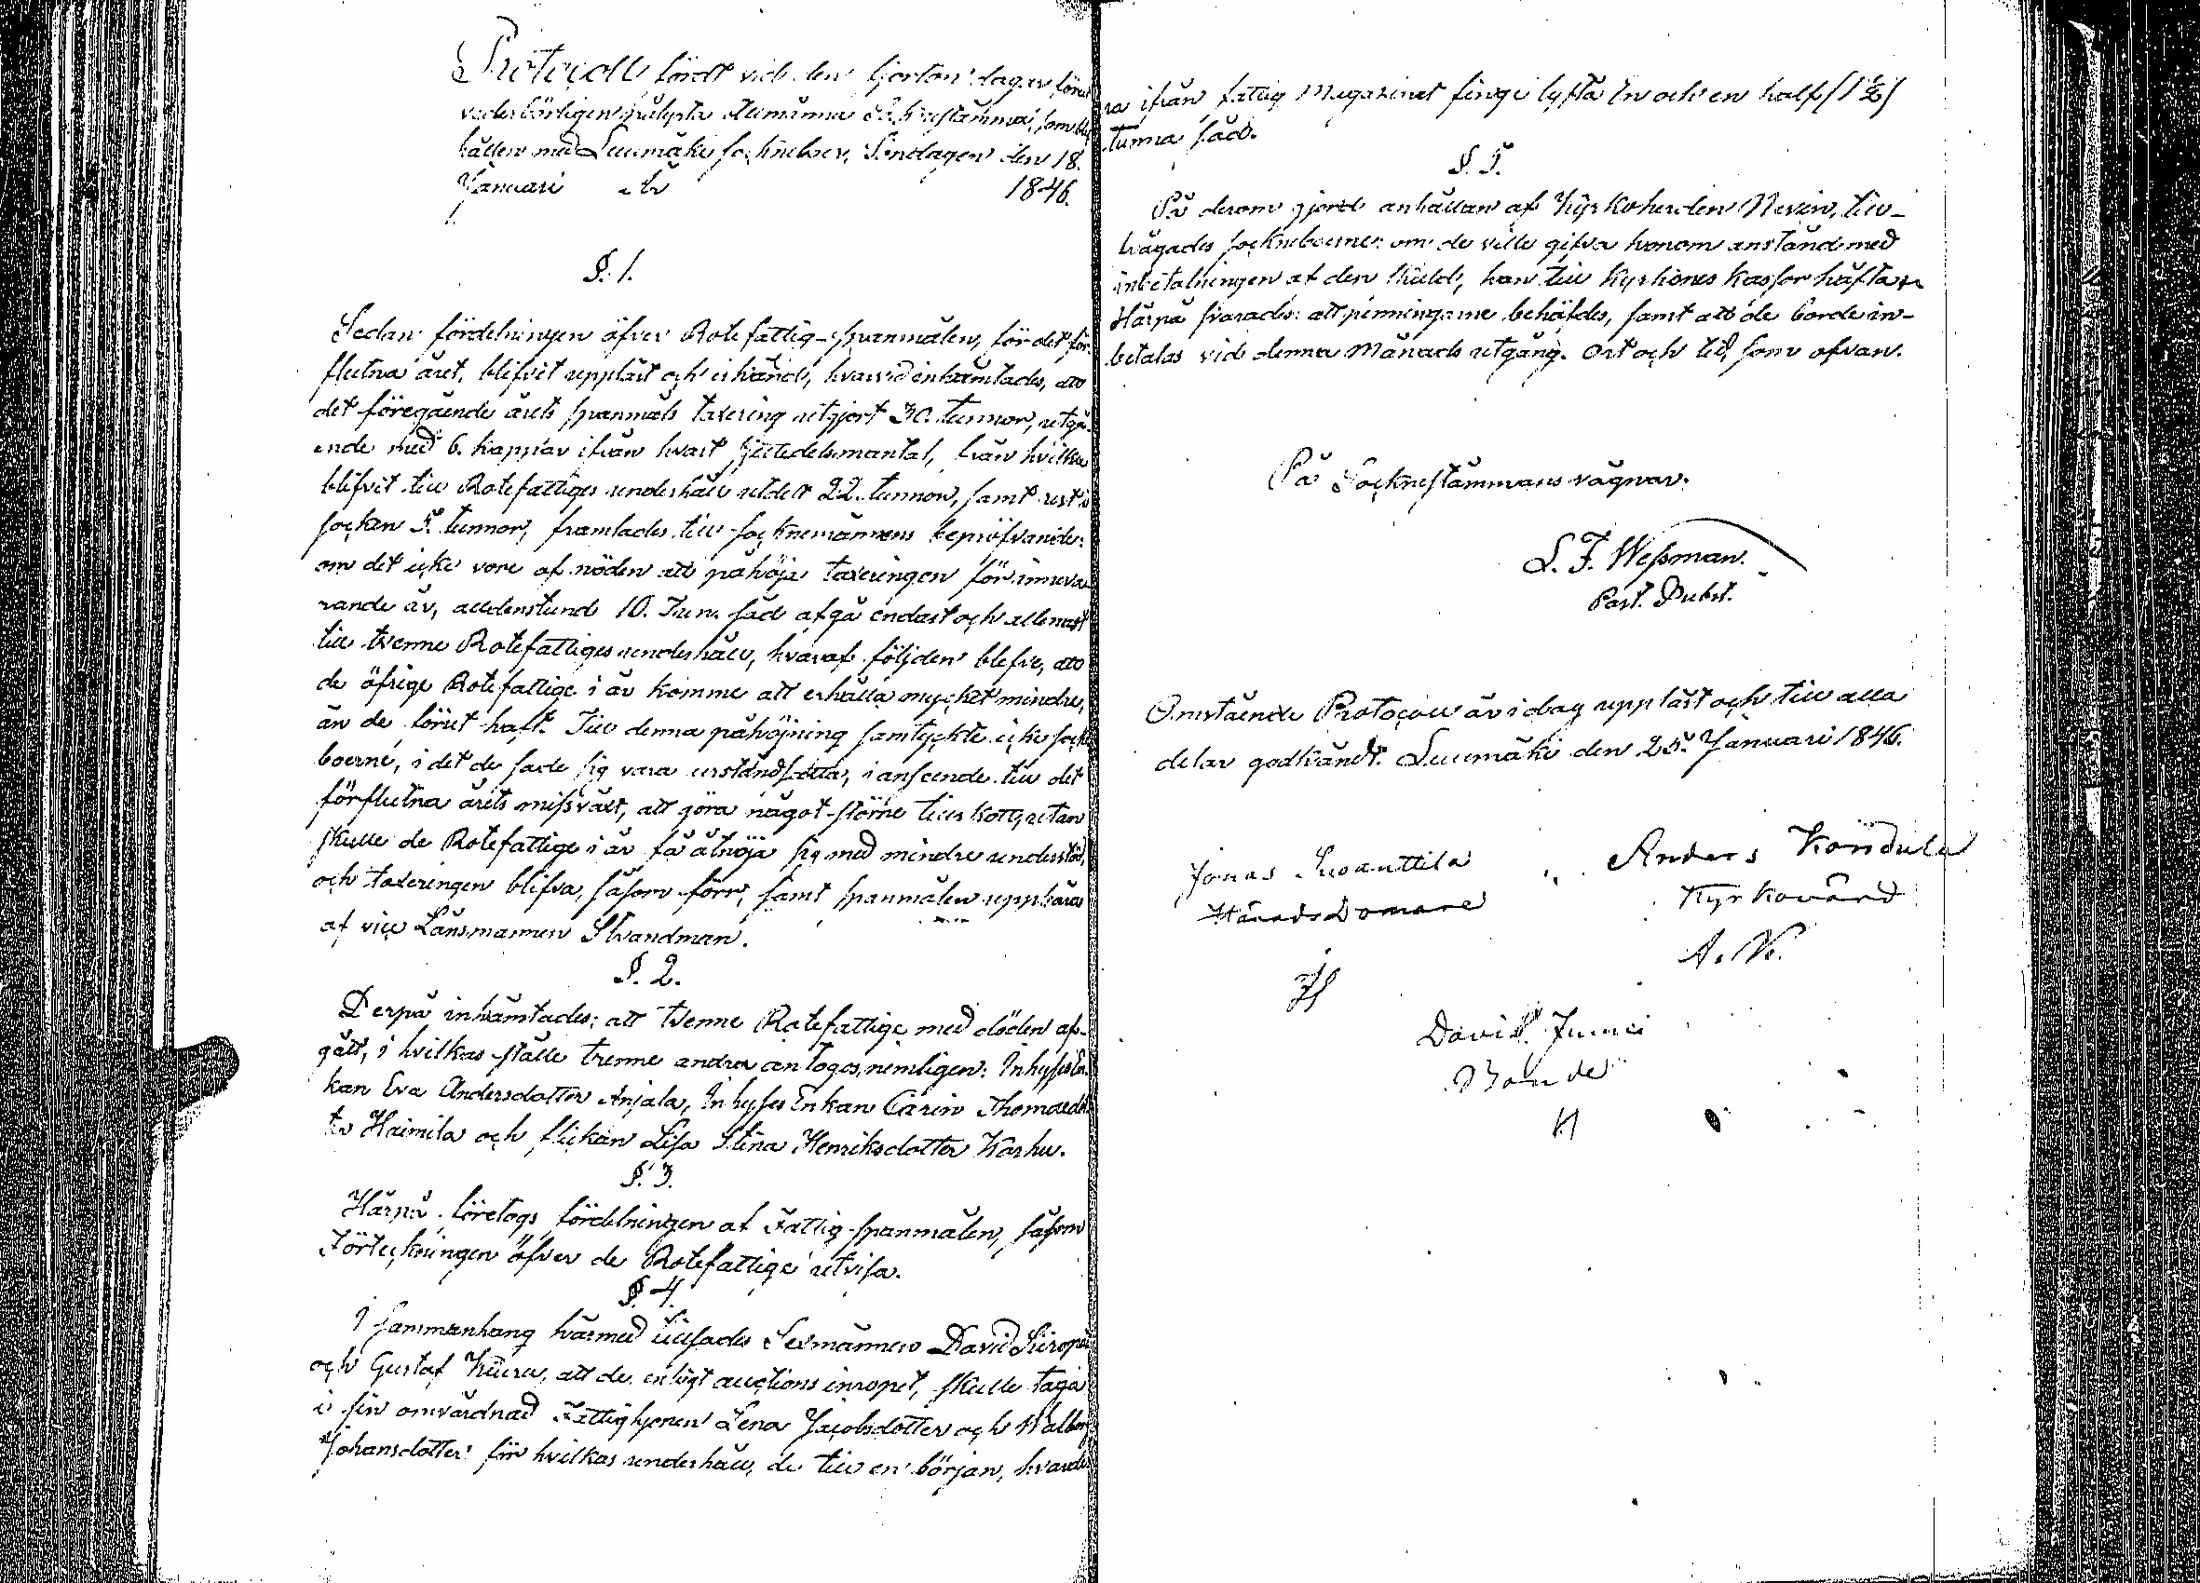 Protocoll, fördt vid den fjorton dagar förut
vederbörligen pålysta allmänna Sockenstämma, som blef
hållen med Luumäki socknebor, Söndagen den 18.
Januari År 1846.
§. 1.
Sedan fördelningen öfver Rotefattig-spanmålen, för det för-
flutna året, blifvit uppläst och erkänd, hvarvid inhämtades, att
det föregående årets spanmåls taxering utgjort 30. tunnor, utgå-
ende med 6. kappar ifrån hvart fjerdedelsmantal, från hvilka
blifvit till Rotefattiges underhåll utdelt 22. tunnor, samt rest i
socken 5. tunnor, framlades till socknemännens bepröfvande:
om det icke vore af nöden att påhöja taxeringen för inneva-
rande år, alldenstund 10. Tun. säd afgå endast och allenast
till tvenne Rotefattiges underhåll, hvaraf följden blefve, att
de öfrige Rotefattige i år komme att erhålla mycket mindre,
än de förut haft. Till denna påhöjning samtyckte icke sockne-
boerne, i det de sade sig vara urståndsatta, i anseende till det
förflutna årets missväxt, att göra något större tillskott, utan
skulle de Rotefattige i år få åtnöja sig med mindre understöd,
och taxeringen blifva, såsom förr, samt spanmålen uppbäras
af vice Länsmannen Strandman.
§. 2.
Derpå inhämtades: att tvenne Rotefattige med döden af-
gått, i hvilkas ställe trenne andra antogos, nemligen: Inhyses En-
kan Eva Andersdotter Anjala, Inhyses Enkan Carin Thomasdot-
ter Haimila och flickan Lisa Stina Henriksdotter Karhu.
§. 3.
Härpå företogs fördelningen af Fattig-spanmålen, såsom
Förteckningen öfver de Rotefattige utvisa.
§. 4.
I sammanhang härmed tillsades Sexmännen David
och Gustaf Kuuru, att de, enligt auctions inropet, skulle taga
i sin omvårdnad Fattighjonen Lena Jacobsdotter och Walborg
Johansdotter för hvilkas underhåll, de till en början, hvardera
ra ifrån fattig Magazinet finge lyfta En och en half (1½)
tunna säd.
§. 5.
På derom gjord anhållan af Kyrkoherden Nerven, till-
frågades socknеboerne: om de ville gifva honom anstånd med
inbetalningen af den skuld, han till Kyrkones kassor häftar.
Härpå svarades: att penningarne behöfdes, samt att de borde in-
betalas vid denna Månads utgång. Ort och tid, som ofvan.
På Socknestämmans vägnar.
L. F. Wessman.
Past. Subst.
Omstående Protocoll är i dag uppläst och till alla
delar godkändt. Luumäki den 25. Januari 1846.
Jonas Suoanttila
HäradsDomare
JS
Anders Köndula
Kyrkovärd
A. K.
David Junni
Bonde
H